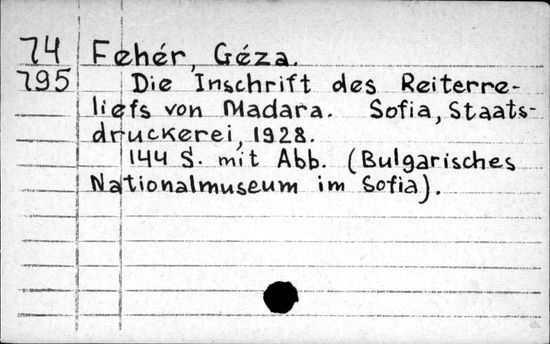 74 Fehér, Géza.
795 Die Inschrift des Reiterre-
liefs von Madara. Sofia, Staats-
druckerei, 1928.
144 S. mit Abb. (Bulgarisches
Nationalmuseum im Sofia).